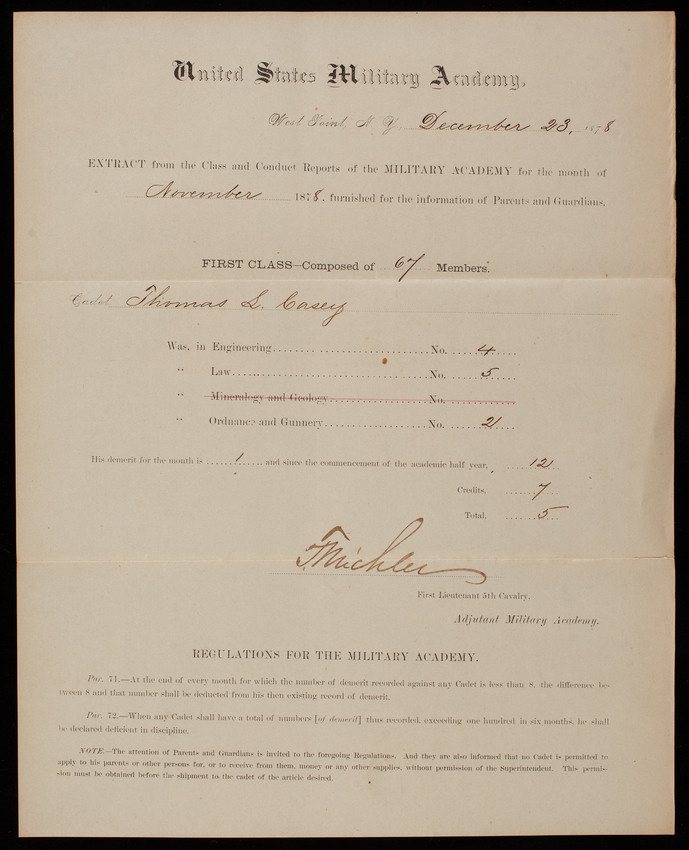 United States Military Academy,
West Point, N. Y. December 23, 1878
EXTRACT from the Class and Conduct Reports of the MILITARY ACADEMY for the month of
November 1878, furnished for the information of Parents and Guardians.
FIRST CLASS—Composed of 67 Members.
Cadet Thomas L. Casey
Was, in Engineering No. 4
" Law No. 5
" Mineralogy and Geology No.
" Ordnance and Gunnery No. 2
His demerit for the month is 1 and since the commencement of the academic half year, 12
Credits, 7
Total, 5
F. Michler
First Lieutenant 5th Cavalry,
Adjutant Military Academy.
REGULATIONS FOR THE MILITARY ACADEMY.
Par. 71.—At the end of every month for which the number of demerit recorded against any Cadet is less than 8, the difference be-
tween 8 and that number shall be deducted from his then existing record of demerit.
Par. 72.—When any Cadet shall have a total of numbers [of demerit] thus recorded, exceeding one hundred in six months, he shall
be declared deficient in discipline.
NOTE.—The attention of Parents and Guardians is invited to the foregoing Regulations. And they are also informed that no Cadet is permitted to
apply to his parents or other persons for, or to receive from them, money or any other supplies, without permission of the Superintendent. This permis-
sion must be obtained before the shipment to the cadet of the article desired.